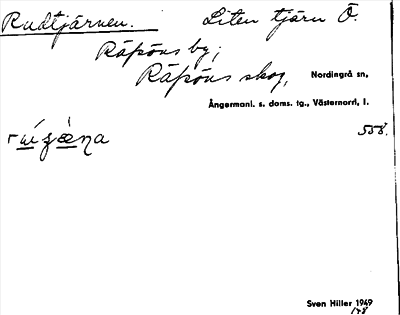 Rudtjärnen. Liten tjärn Ö.
Räpöns by,
Räpöns skog, Nordingrå sn,
Ångermanl. s. doms. tg., Västernorrl. l.
558.
Sven Hiller 1949